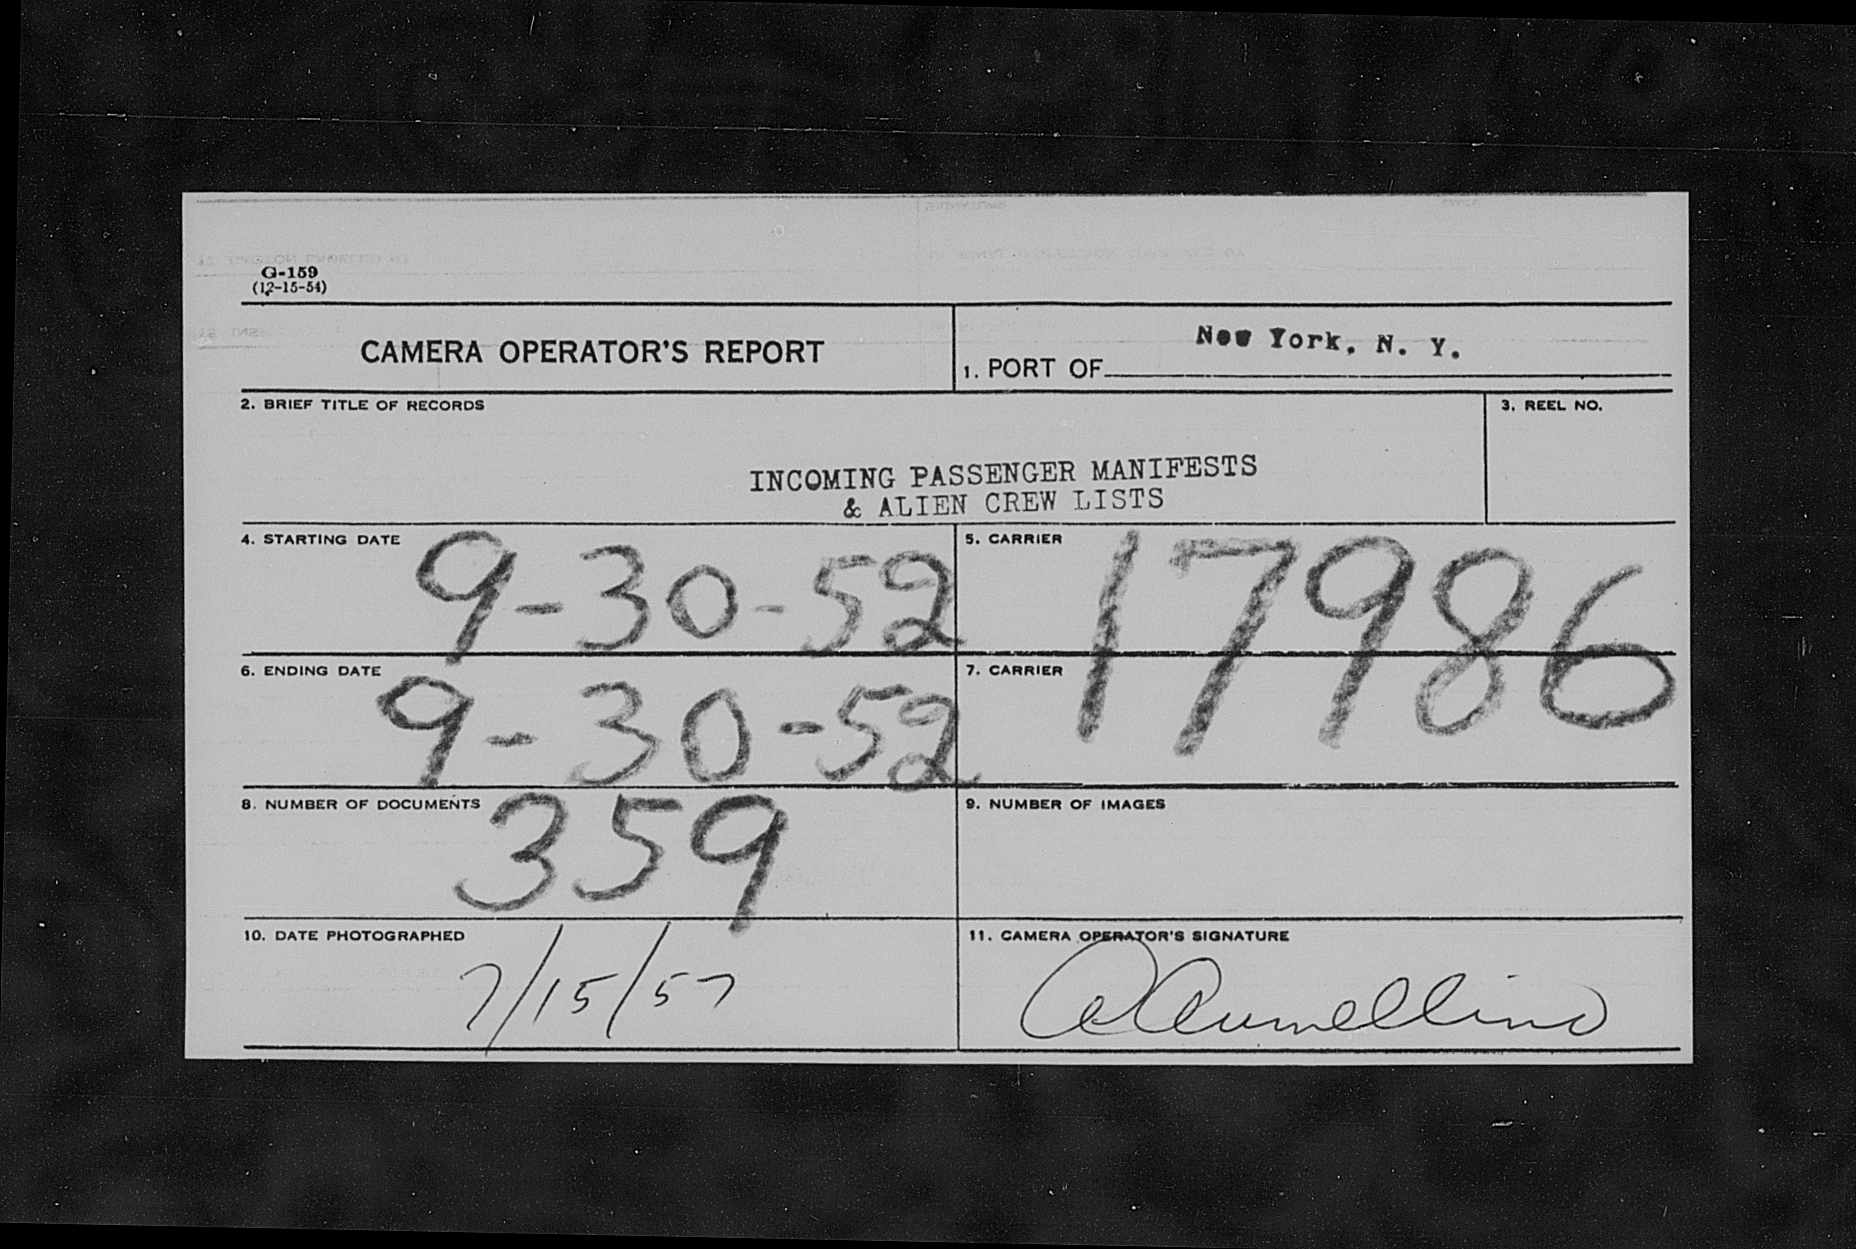 G-159
(12-15-54)
CAMERA OPERATOR'S REPORT
1. PORT OF New York, N. Y.
2. BRIEF TITLE OF RECORDS
3. REEL NO.
INCOMING PASSENGER MANIFESTS
& ALIEN CREW LISTS
4. STARTING DATE 9-30-52
5. CARRIER 17986
6. ENDING DATE 9-30-52
7. CARRIER
8. NUMBER OF DOCUMENTS 359
9. NUMBER OF IMAGES
10. DATE PHOTOGRAPHED 7/15/57
11. CAMERA OPERATOR'S SIGNATURE